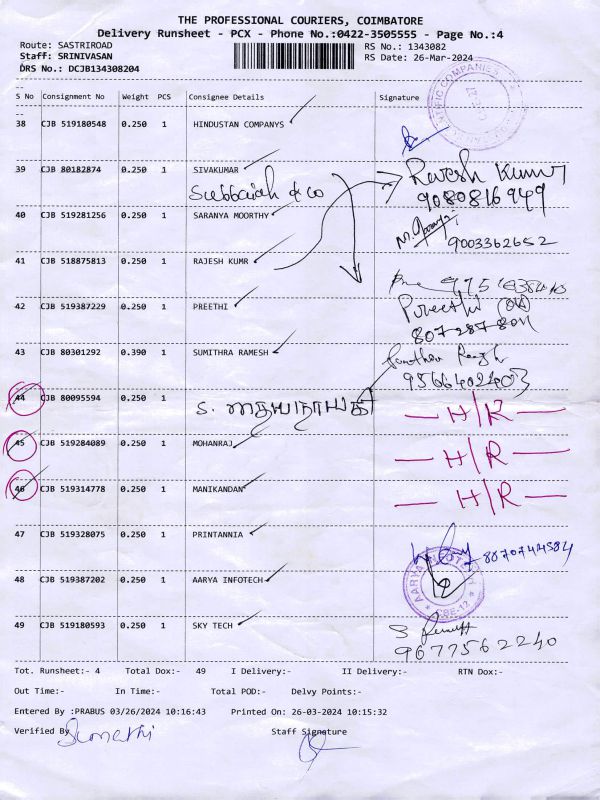 THE PROFESSIONAL COURIERS, COIMBATORE
Delivery Runsheet - PCX - Phone No.:0422-3505555 - Page No.:4
Route: SASTRIROAD RS No.: 1343082
Staff: SRINIVASAN RS Date: 26-Mar-2024
DRS No.: DCJB134308204
S No Consignment No Weight PCS Consignee Details Signature
38 CJB 519180548 0.250 1 HINDUSTAN COMPANYS
39 CJB 80182874 0.250 1 SIVAKUMAR
Subbaiah & co
Rajesh Kumar
9080816949
40 CJB 519281256 0.250 1 SARANYA MOORTHY
9003362652
41 CJB 518875813 0.250 1 RAJESH KUMR
42 CJB 519387229 0.250 1 PREETHI
Preethi
43 CJB 80301292 0.390 1 SUMITHRA RAMESH
44 CJB 80095594 0.250 1 H/R
45 CJB 519284089 0.250 1 MOHANRAJ H/R
46 CJB 519314778 0.250 1 MANIKANDAN H/R
47 CJB 519328075 0.250 1 PRINTANNIA
48 CJB 519387202 0.250 1 AARYA INFOTECH
49 CJB 519180593 0.250 1 SKY TECH
9677562240
Tot. Runsheet:- 4 Total Dox:- 49 I Delivery:- II Delivery:- RTN Dox:-
Out Time:- In Time:- Total POD:- Delvy Points:-
Entered By :PRABUS 03/26/2024 10:16:43 Printed On: 26-03-2024 10:15:32
Verified By Sumathi Staff Signature